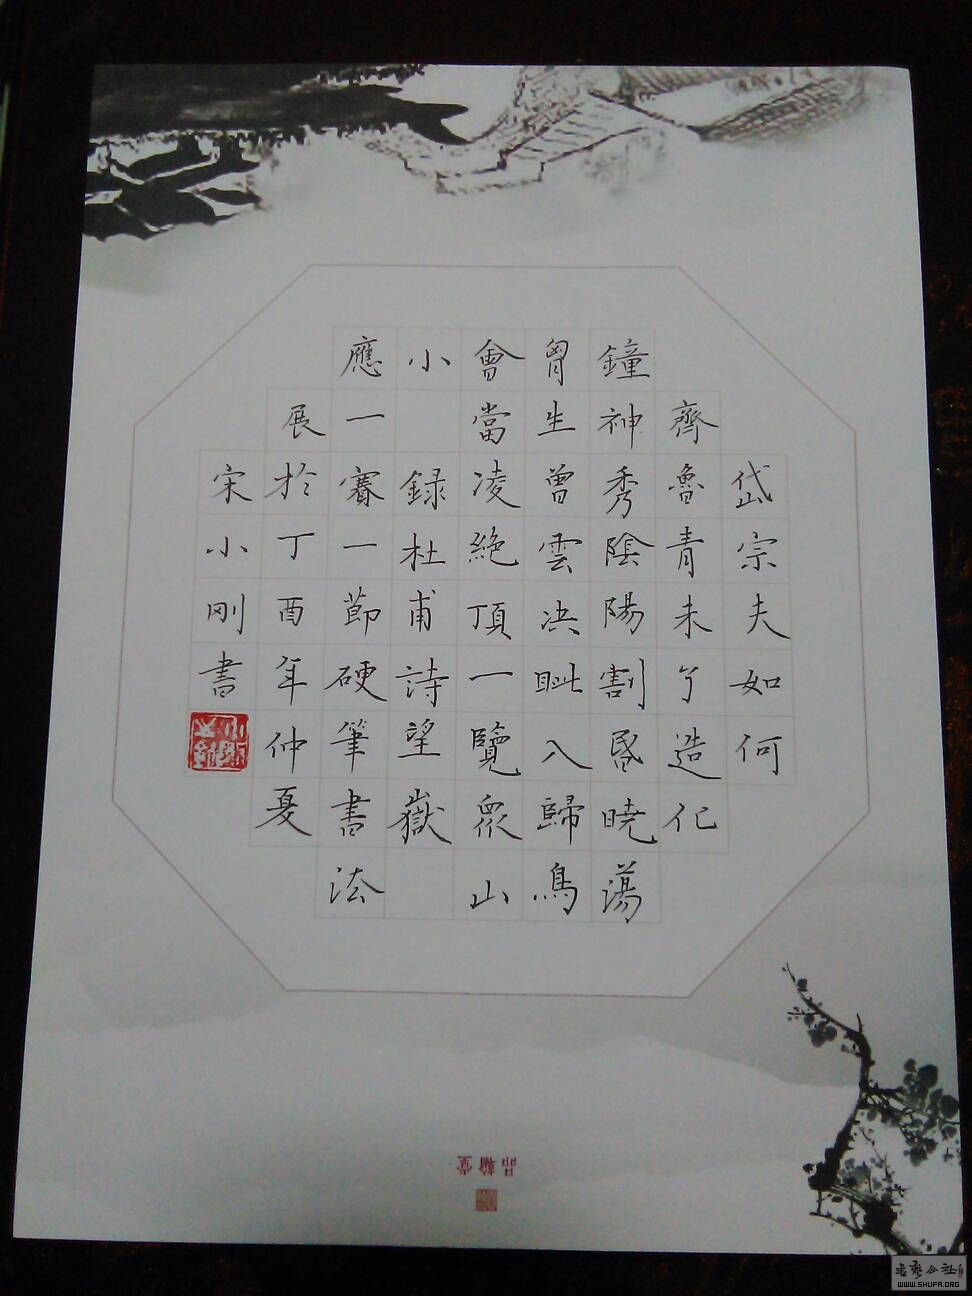 岱宗夫如何
齊魯青未了造化
鐘神秀陰陽割昏曉蕩
胷生曾雲決眦入歸鳥
會當凌絕頂一覽眾山
小 録杜甫詩望嶽
應一賽一節硬筆書法
展於丁酉年仲夏
宋小刚書
品翰堂
書藝公社
WWW.SHUFA.ORG